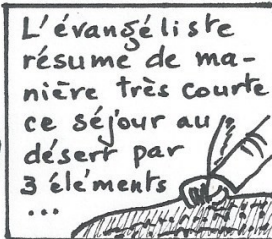 L'évangéliste
résume de ma-
nière très courte
ce séjour au
désert par
3 éléments
...